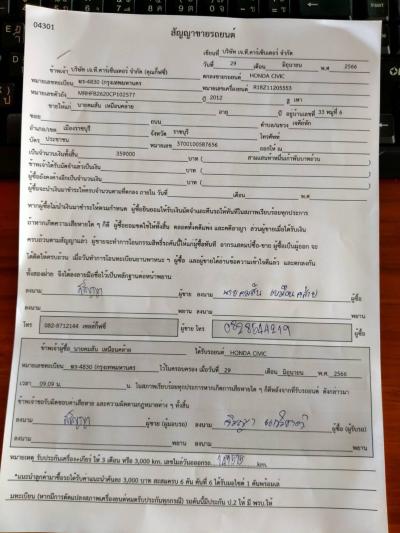 04301
สัญญาขายรถยนต์
เขียนที่ บริษัท เจ.ที.คาร์เซ็นเตอร์ จำกัด
ข้าพเจ้า บริษัท เจ.ที.คาร์เซ็นเตอร์ จำกัด (คุณกิ๊ฟซี่) วันที่ 29 เดือน มิถุนายน พ.ศ 2566
หมายเลขทะเบียน พร-4830 (กรุงเทพมหานคร) ตกลงขายรถยนต์ HONDA CIVIC
หมายเลขตัวถัง MRHFB2620CP102577 หมายเลขเครื่องยนต์ R18Z11205553
ปี 2012 สี เทา
ขายให้แก่ นายคมสัน เหมือนคล้าย อายุ ปี อยู่บ้านเลขที่ 33 หมู่ที่ 6
ซอย ถนน ตำบล/แขวง เจดีย์หัก
อำเภอ/เขต เมืองราชบุรี จังหวัด ราชบุรี โทรศัพท์
บัตร ประชาชน หมายเลข 3700100587656 ออกให้ ณ
เป็นจำนวนเงินทั้งสิ้น 359000 บาท ( สามแสนห้าหมื่นเก้าพันบาทถ้วน )
ข้าพเจ้าได้รับมัดจำแล้วเป็นเงิน บาท ( )
ผู้ซื้อยังคงค้างอีกเป็นจำนวนเงิน บาท ( )
ผู้ซื้อจะนำเงินมาชำระให้ครบจำนวนตามที่ตกลง ภายใน วันที่ เดือน พ.ศ
หากผู้ซื้อไม่นำเงินมาชำระให้ตามกำหนด ผู้ซื้อยินยอมให้ริบเงินมัดจำและคืนรถให้ทันทีในสภาพเรียบร้อยทุกประการ
ถ้าหากเกิดความเสียหายใด ๆ ก็ดี ผู้ซื้อยอมชดใช้ให้ทั้งสิ้น ตลอดทั้งคดีแพ่ง และคดีอาญา ส่วนผู้ขายเมื่อได้รับเงิน
ครบถ้วนตามสัญญาแล้ว ผู้ขายจะทำการโอนกรรมสิทธิ์รถคันนี้ให้แก่ผู้ซื้อทันที อากรแสตมป์ซื้อ-ขาย ผู้ซื้อเป็นผู้ออก จะ
ได้คิดให้ครบถ้วน เมื่อวันทำการโอนทะเบียนยานพาหนะ ฯ ผู้ซื้อ และผู้ขายได้อ่านข้อความเข้าใจดีแล้ว และตกลงกัน
ทั้งสองฝ่าย จึงได้ลงลายมือชื่อไว้เป็นหลักฐานต่อหน้าพยาน
ลงนาม ผู้ขาย ลงนาม นายคมสัน เหมือนคล้าย ผู้ซื้อ
ลงนาม พยาน ลงนาม พยาน
โทร 082-8712144 เซลล์กิ๊ฟซี่ ผู้ขาย โทร ผู้ซื้อ
ข้าพเจ้าผู้ซื้อ นายคมสัน เหมือนคล้าย ได้รับรถยนต์ HONDA CIVIC
หมายเลขทะเบียน พร-4830 (กรุงเทพมหานคร ไว้ในครอบครอง เมื่อวันที่ 29 เดือน มิถุนายน พ.ศ 2566
เวลา 09.09 น. น. ในสภาพเรียบร้อยทุกประการหากเกิดการเสียหายใด ๆ ก็ดีหลังจากที่รับรถยนต์ ดังกล่าวมา
ข้าพเจ้าขอรับผิดชอบค่าเสียหาย และความผิดตามกฎหมายต่าง ๆ ทั้งสิ้น
ลงนาม ผู้ขาย (ผู้มอบรถ) ลงนาม ผู้ซื้อ (ผู้รับรถ)
ลงนาม พยาน ลงนาม พยาน
หมายเหตุ รับประกันเครื่อง+เกียร์ ให้ 3 เดือน หรือ 3,000 km. เลขไมล์วันออกรถ km.
*แนะนำลูกค้ามาซื้อรถได้รับค่าแนะนำคันละ 3,000 บาท สะสมครบ 6 คัน คันที่ 6 ได้รับมอไซค์ 1 คันพร้อมเล่
มทะเบียน (หากมีการดัดแปลงสภาพเครื่องยนต์หมดรับประกันทุกกรณี) รถคันนี้มีประกัน ป.2 ให้ มี พรบ.ให้